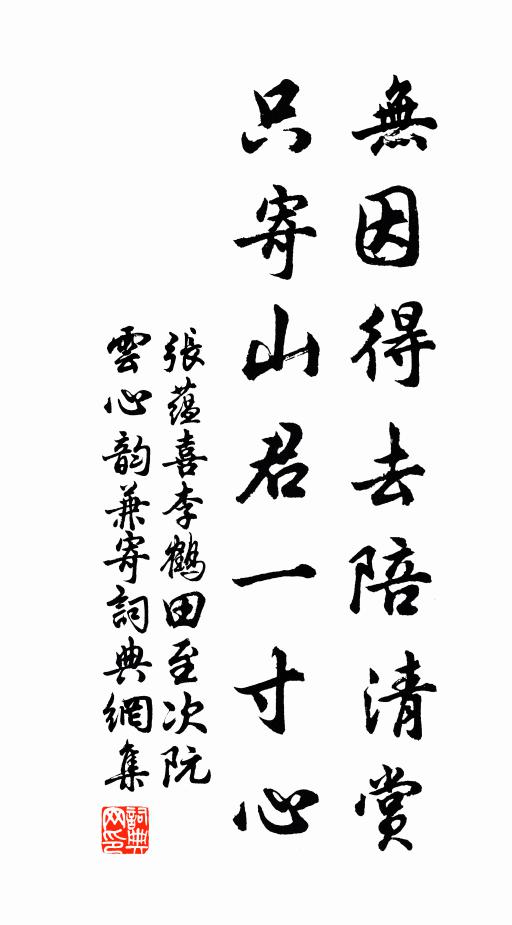 無因得去陪清賞
只寄山君一寸心
張蘊喜李鶴田至次阮
雲心韵兼寄詞典網集
詞典
网印